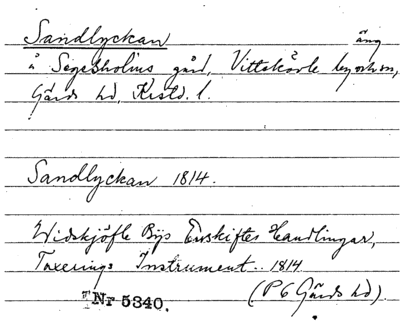 Sandlyckan äng
å Segesholms gård, Vittskövle by o. hn,
Gärds hd, Krstd. l.
Sandlyckan 1814.
Widskjöfle Bys Enskiftes Handlingar,
Taxerings Instrument.. 1814
(P 6 Gärds hd).
TNr 5340.